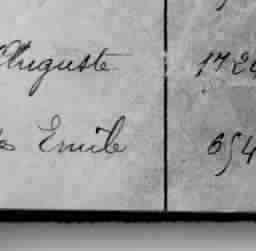 Auguste 172
Emile 654